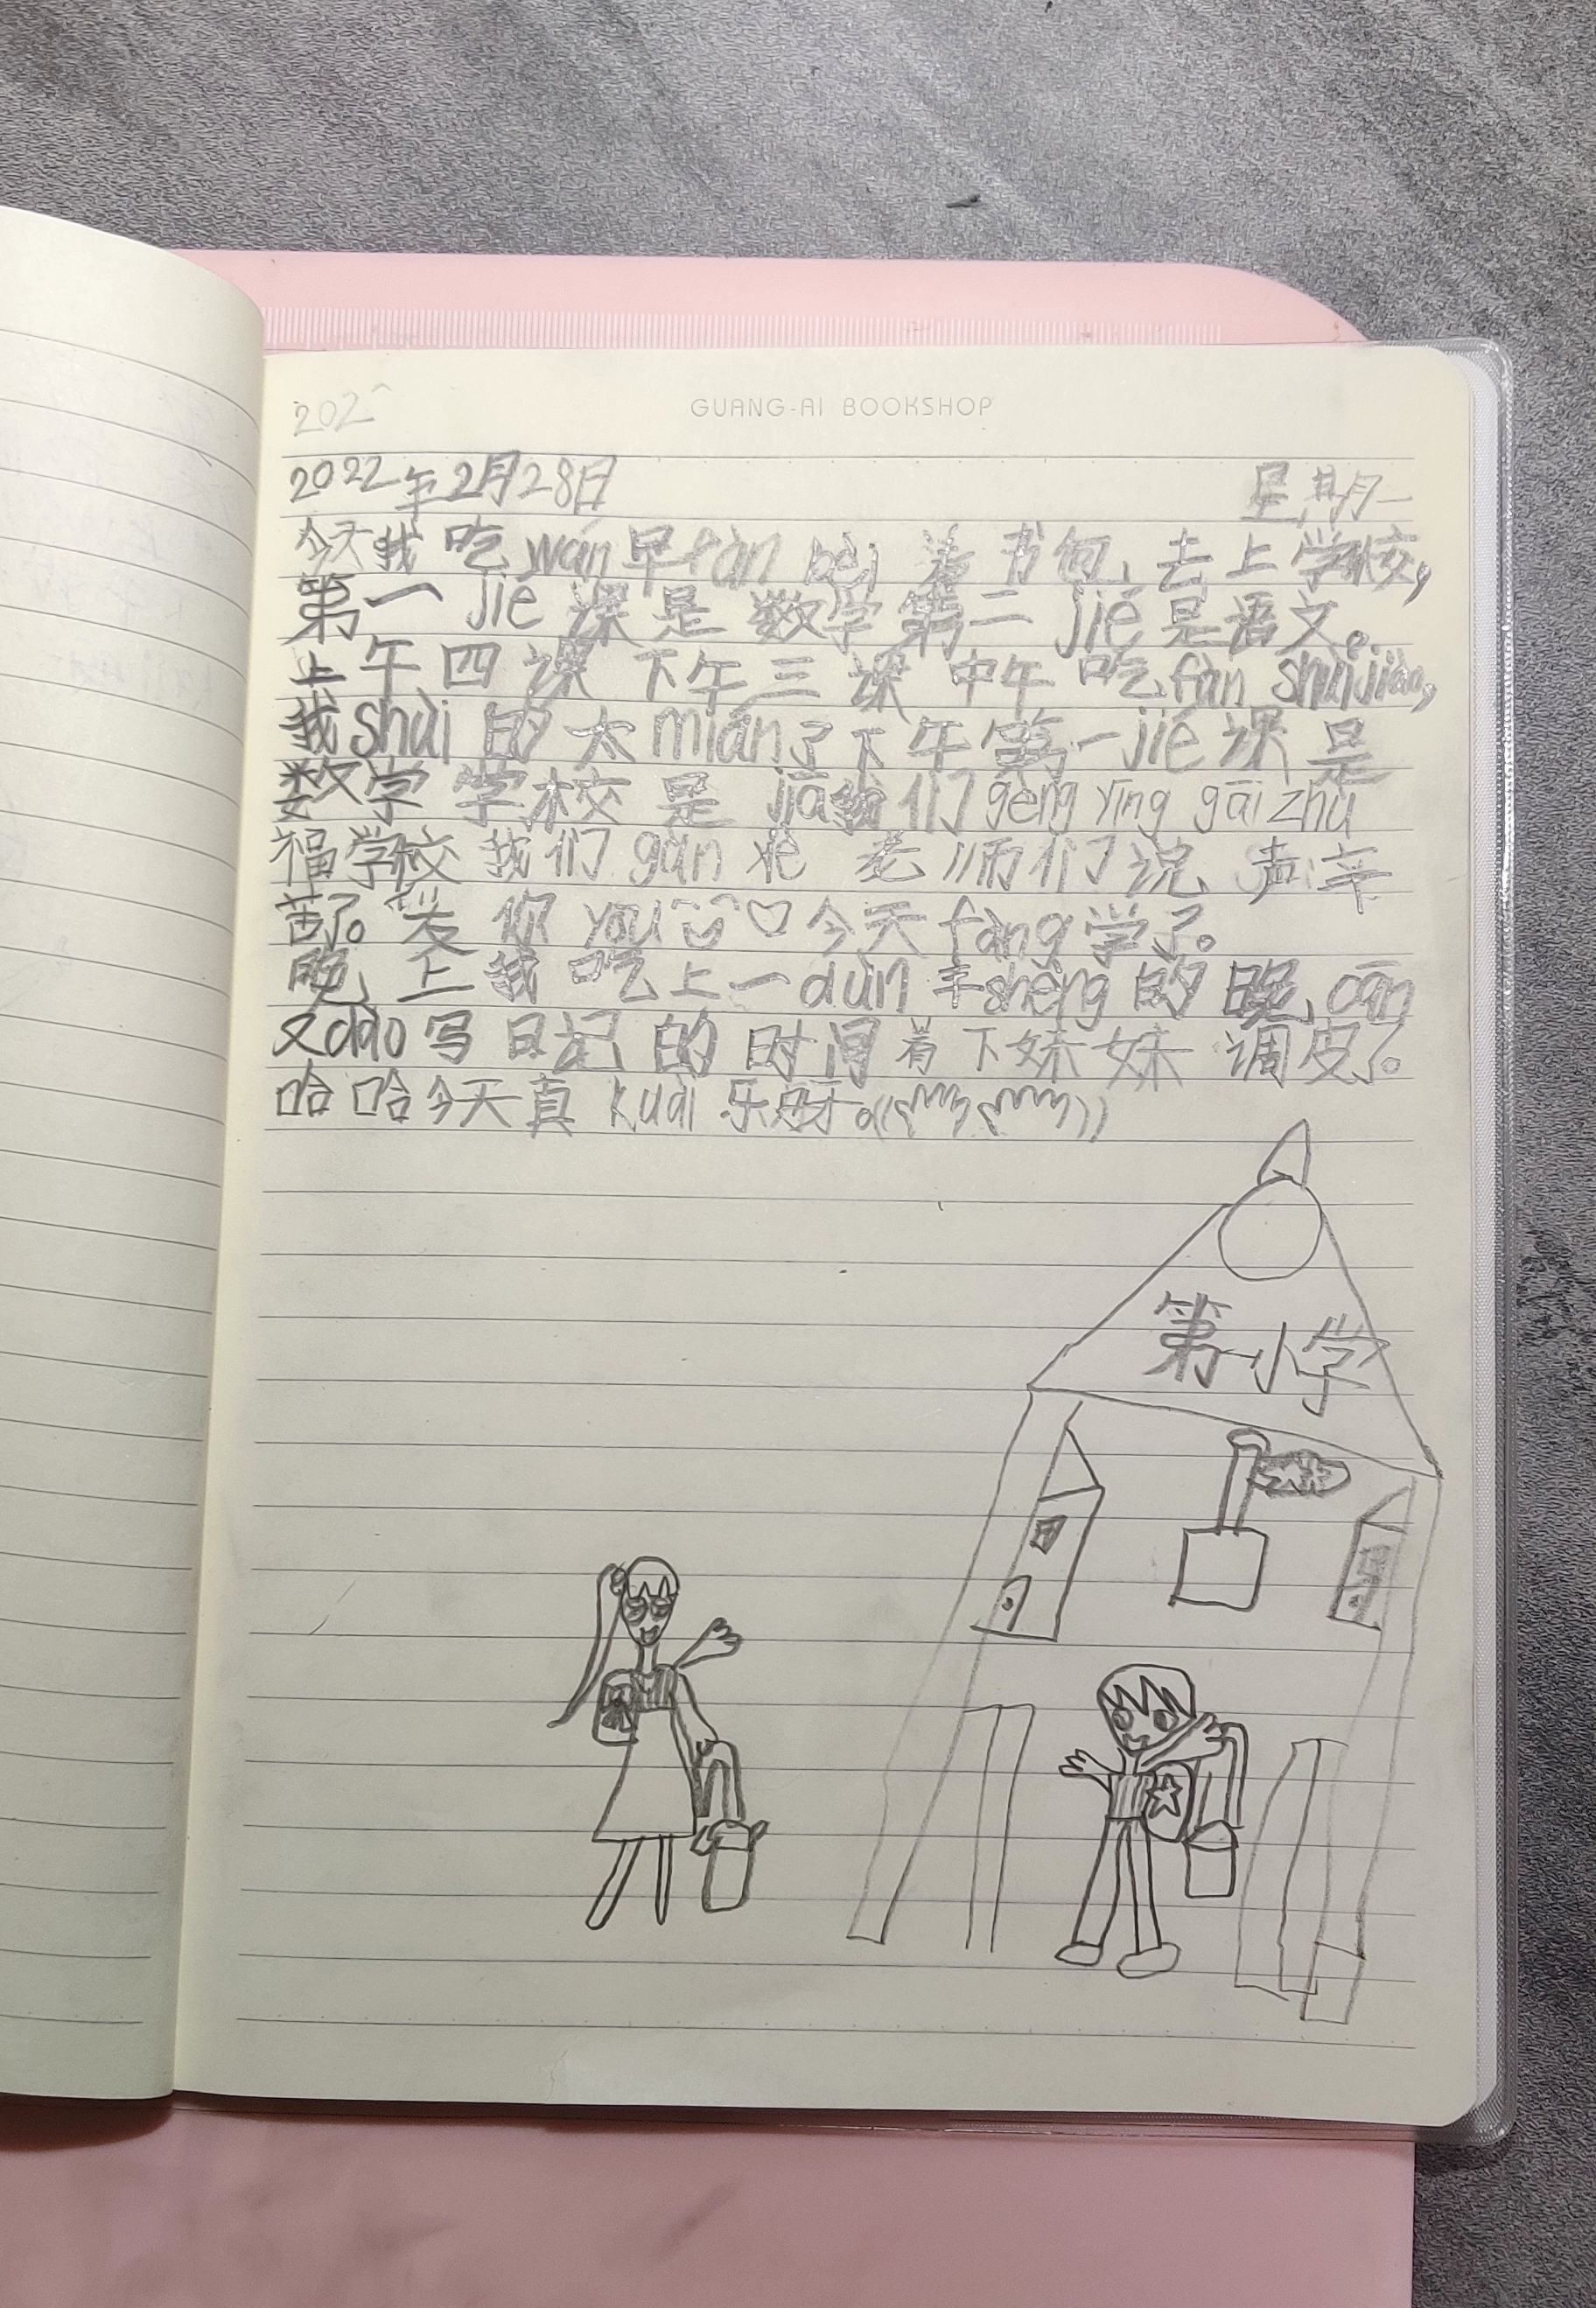 GUANG-AI BOOKSHOP
202
2022年2月28日 星期一
今天我吃wán早fàn bēi着书包,去上学校,
第一jié课是数学第二jié是语文。
上午四课下午三课中午吃fàn shuijiào,
我shùi的太mián了下午第一jié课是
数学学校是jiā我们gèng yīng gāi zhù
福学校我们gàn 老师们说声辛
苦了。爱你you♡今天fàng学了。
晚上我吃上一dùn丰shèng的晚cān
又dào写日记的时间着下妹妹调皮了。
哈哈今天真kuài乐呀。
第一小学